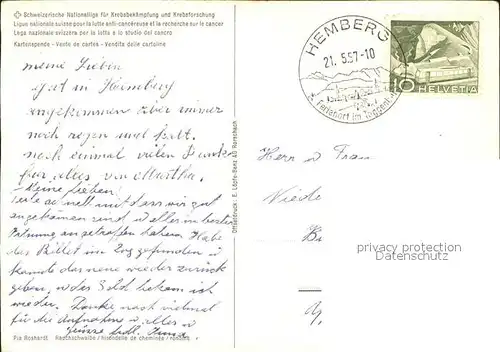 Schweizerische Nationalliga für Krebsbekämpfung und Krebsforschung
Ligue nationale suisse pour la lutte anti-cancéreuse et la recherche sur le cancer
Lega nazionale svizzera per la lotta e lo studio del cancro
Kartenspende - Vente de cartes - Vendita delle cartoline
meine Lieben
gut in Hemberg
angekommen aber immer
noch regen und kalt.
noch einmal vielen Dank
für alles von Martha.
Meine Lieben!
schnell mit dass wir gut
angekommen sind u alles in bester
Ordnung angetroffen haben. Habe
das Billet im Zug gefunden u
konnte das neue wieder zurück
geben, u das Geld bekam ich
wieder. Danke noch vielmal
für die Aufnahme u alles u
Grüsse
Pia Roshardt Rauchschwalbe / Hirondelle de cheminée / Rondine
Offsetdruck: E. Löpfe-Benz AG Rorschach
HEMBERG
21. 5.57-10
Ferienort im Toggenb.
10 HELVETIA
Herr u Frau
Niede
privacy protection
Datenschutz